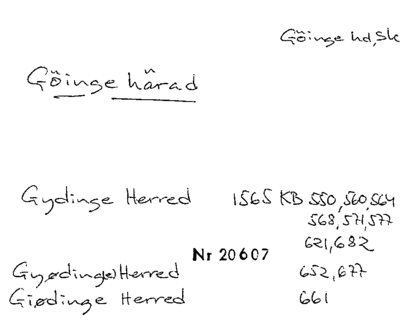 Göinge hd, Sk
Göinge härad
Gydinge Herred 1565 KB 550, 560, 564
568, 571, 577
621, 682
Nr 20607
Gyødinge(s) Herred 652, 677
Giødinge Herred 661